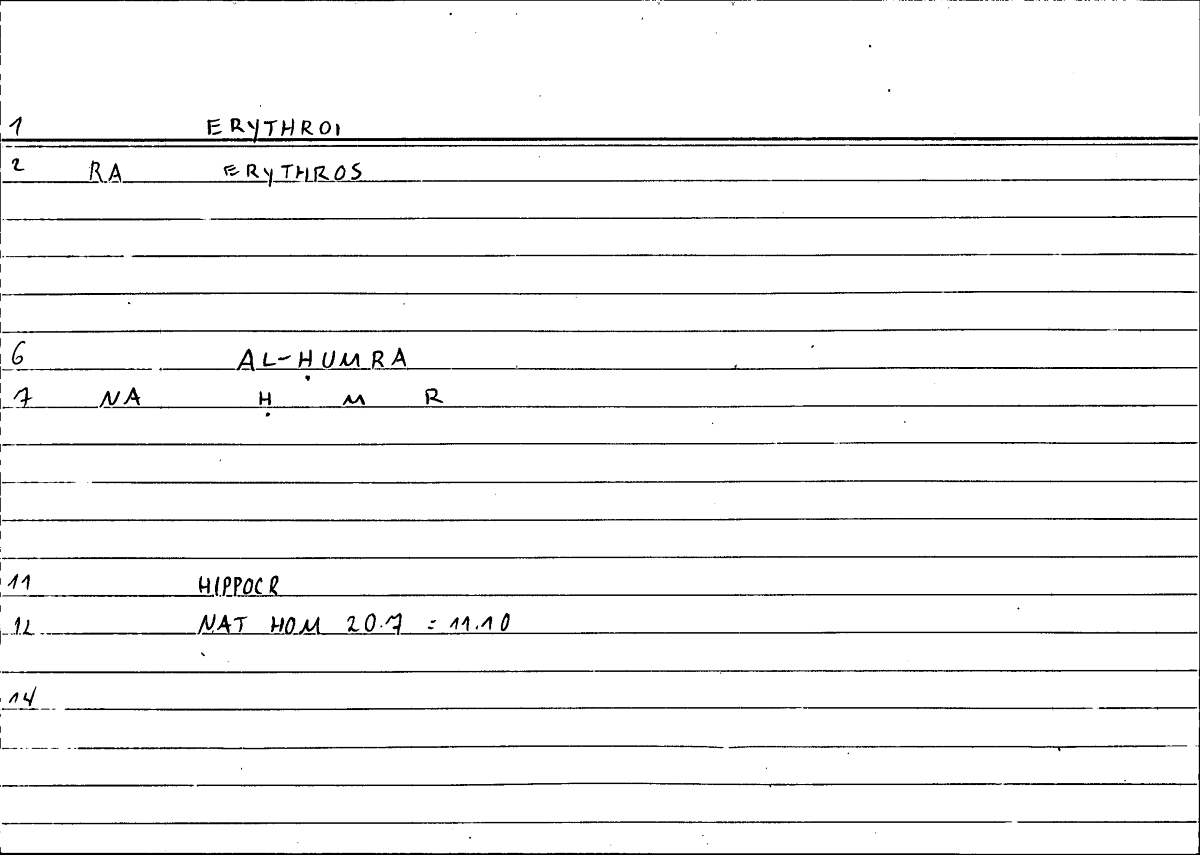 1 ERYTHROI
2 RA ERYTHROS
6 AL-ḤUMRA
7 NA Ḥ M R
11 HIPPOCR
12 NAT HOM 20.7 = 11.10
14